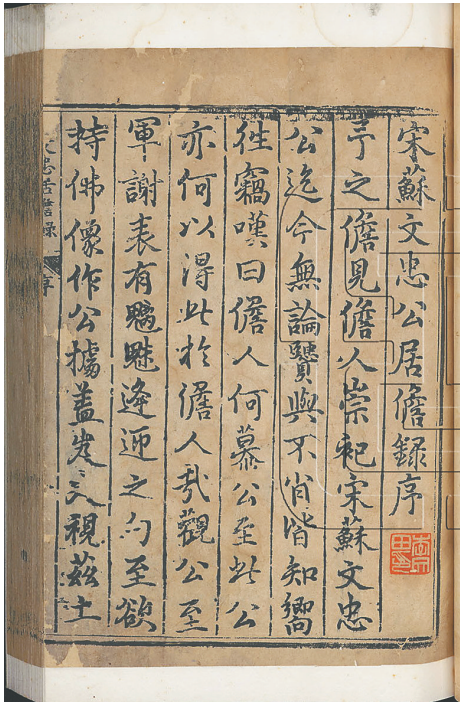 宋蘇文忠公居儋録序
予之儋見儋人崇祀宋蘇文忠
公迄今無論賢與不肖皆知嚮
徃竊嘆曰儋人何慕公至此公
亦何以得此於儋人㢤觀公至
軍謝表有魑魅逄迎之句至欲
持佛像作公據盖岌岌乂視茲土